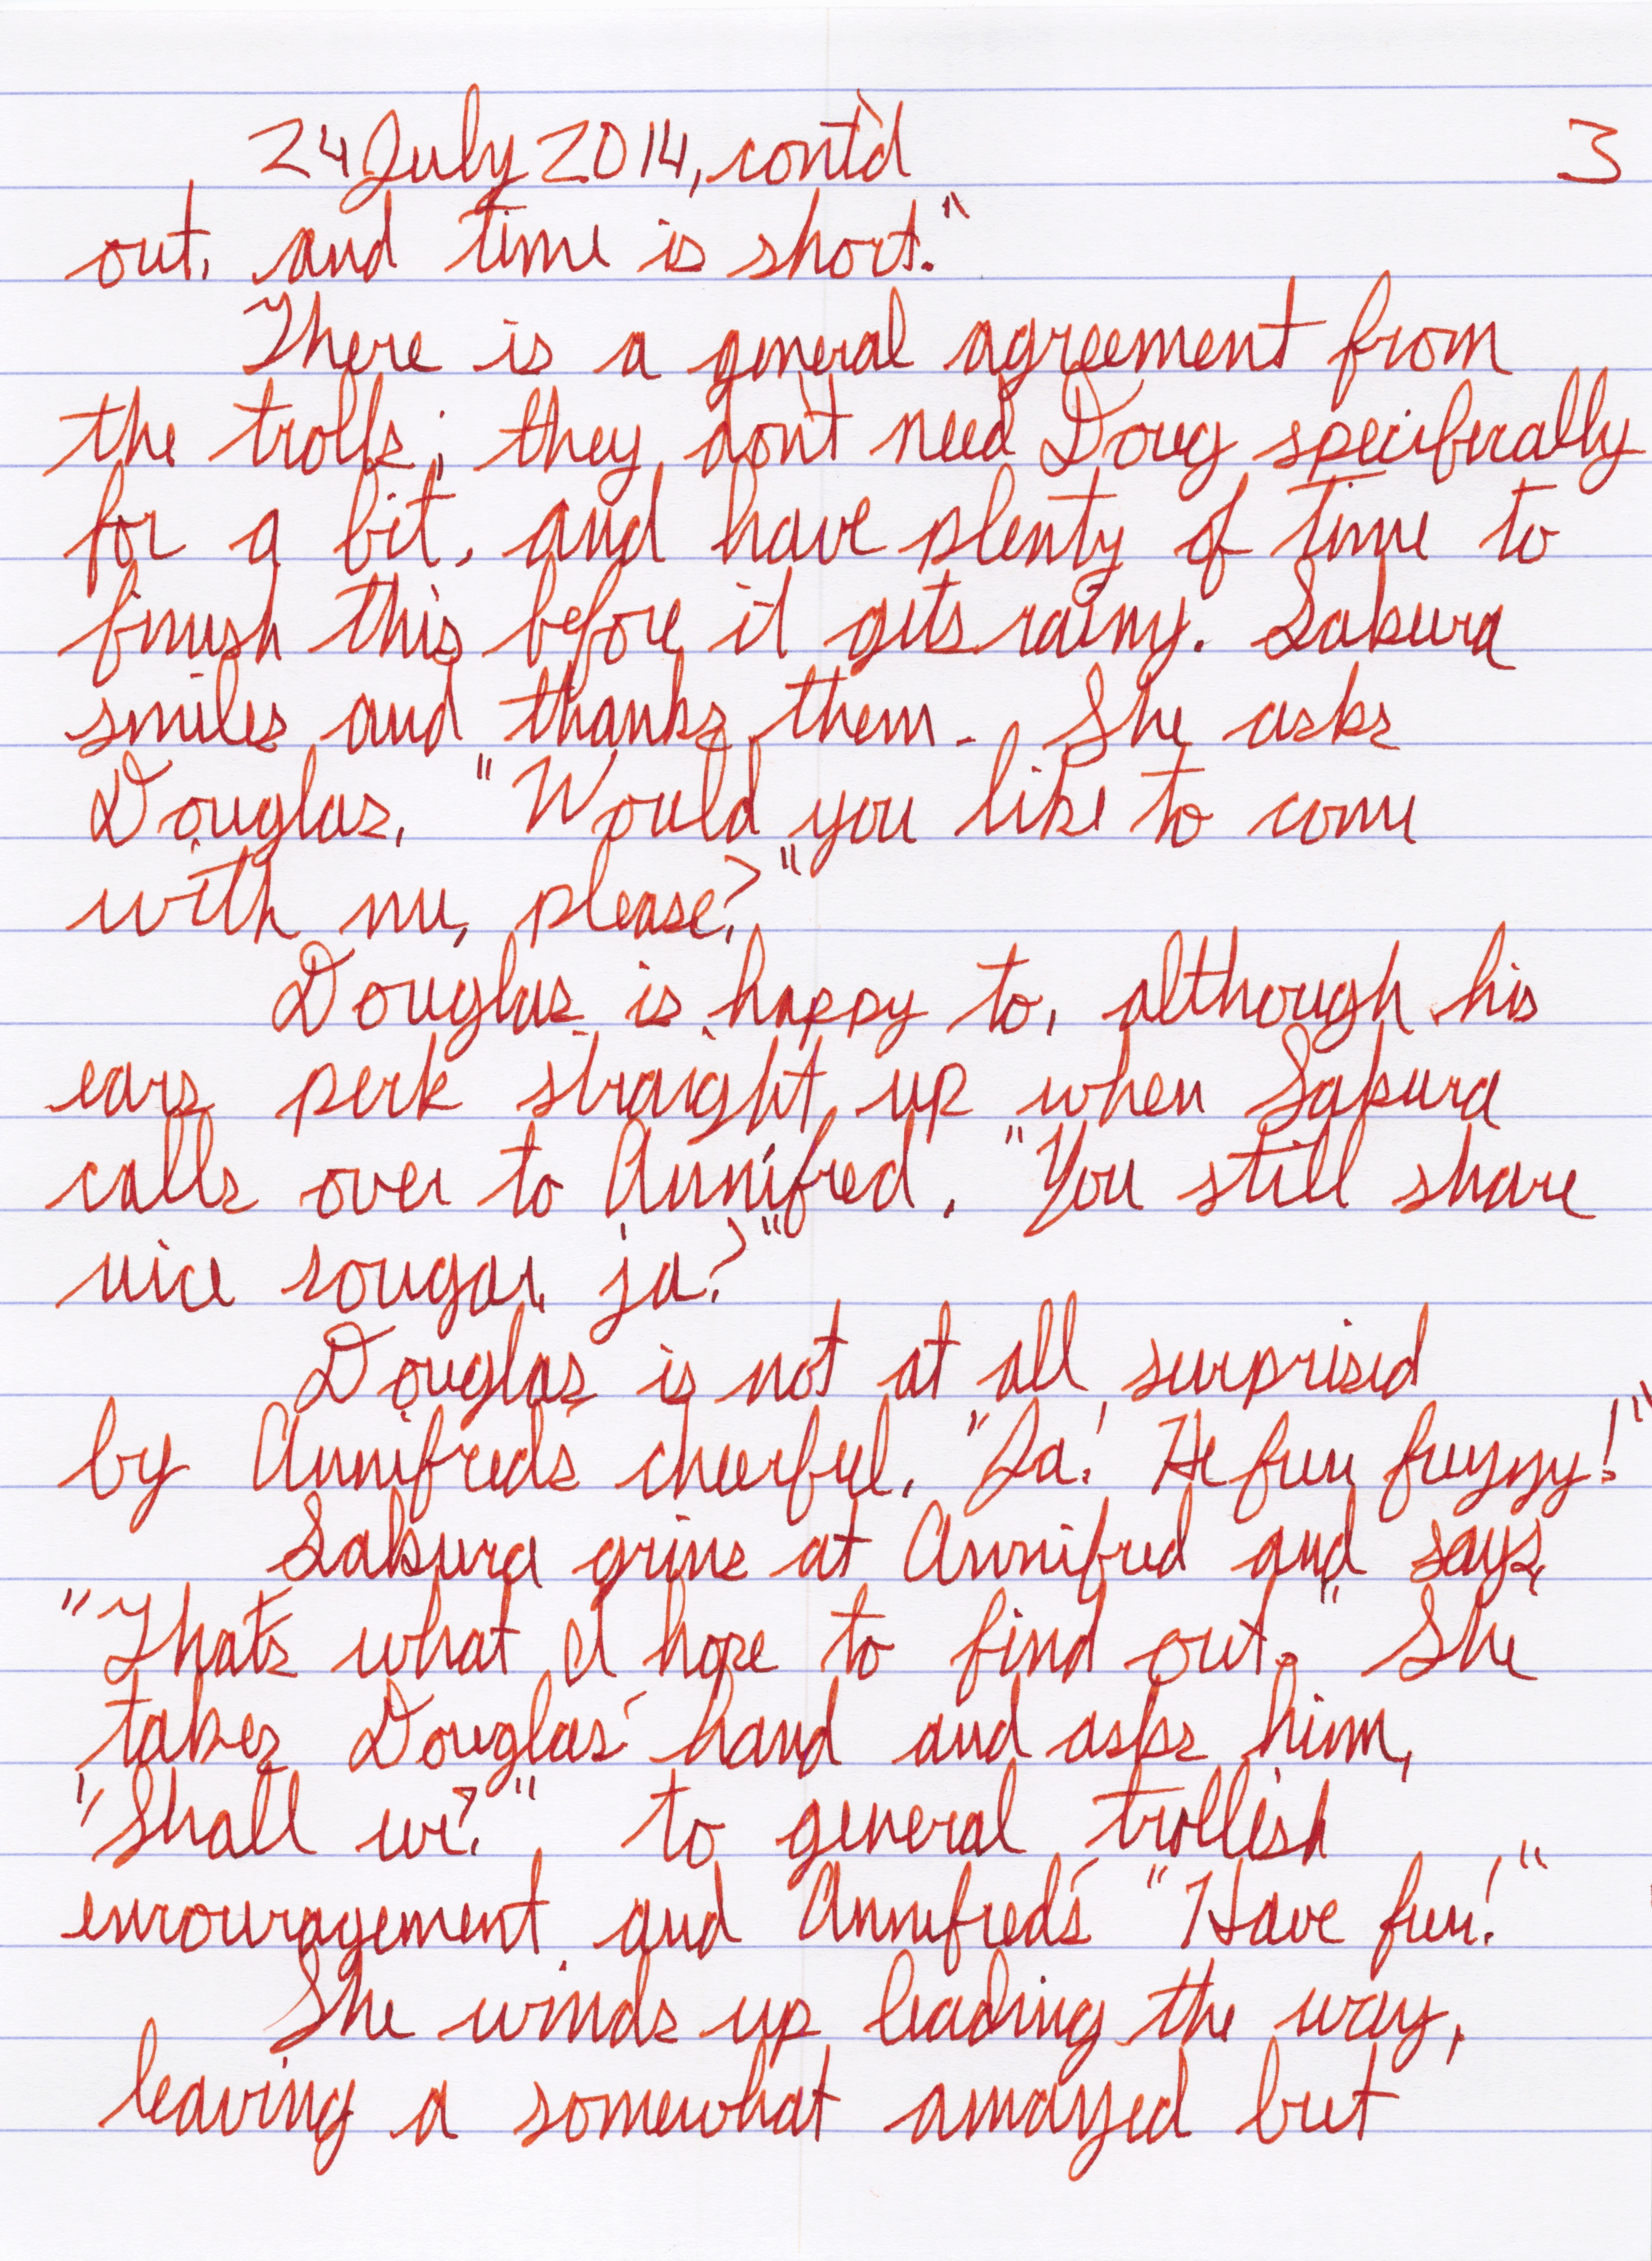 24 July 2014, cont'd 3
out, and time is short."
There is a general agreement from
the trolls; they don't need Doug specifically
for a bit, and have plenty of time to
finish this before it gets rainy. Sakura
smiles and thanks them. She asks
Douglas, "Would you like to come
with me, please?"
Douglas is happy to, although his
ears perk straight up when Sakura
calls over to Annifred, "You still share
nice cougar, ja?"
Douglas is not at all surprised
by Annifred's cheerful, "Ja! He fun fuzzy!"
Sakura grins at Annifred and says,
"That's what I hope to find out." She
takes Douglas' hand and asks him,
"Shall we?" to general trollish
encouragement and Annifred's "Have fun!"
She winds up leading the way,
leaving a somewhat amazed but